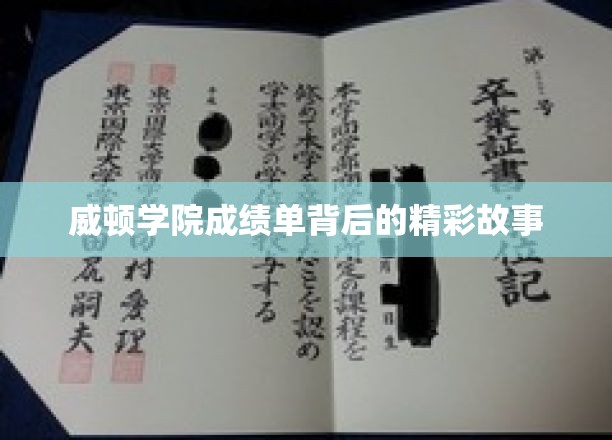 威顿学院成绩单背后的精彩故事
第 号
卒業証書・ 位記
月 日生
本学商学部商学 所定の課程を
修めて本学を たことを認め
学士(商学)の学 授与する
平成
東京国際大学商学 村愛理
東京国際大学 田尻嗣夫